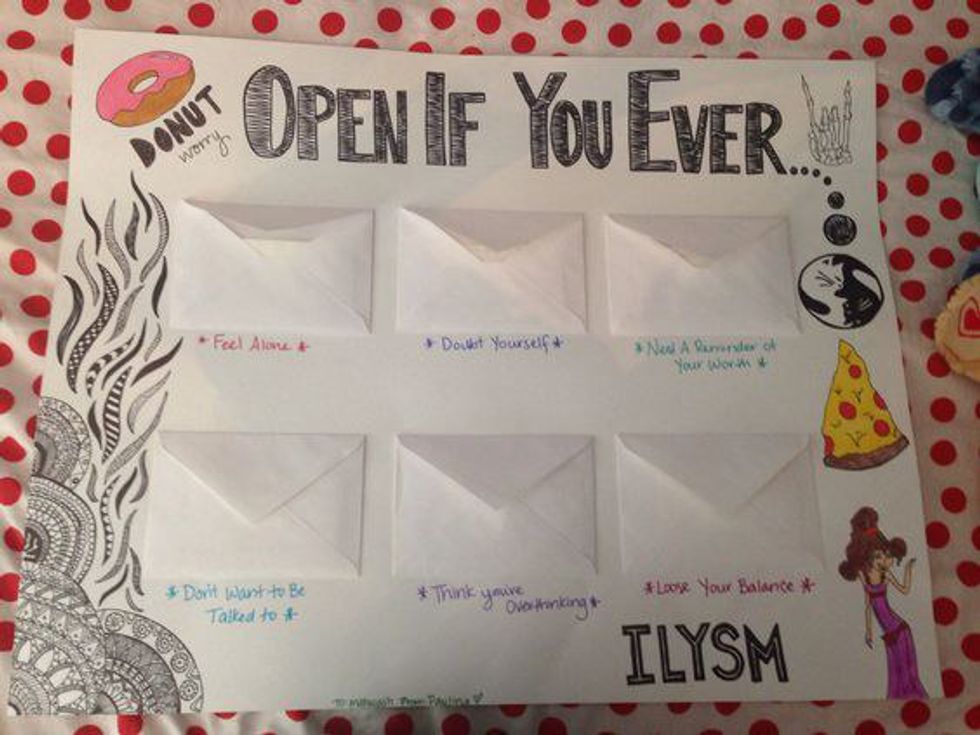 DONUT
worry
OPEN IF YOU EVER...
*Feel Alone*
*Doubt Yourself*
*Need A Reminder of
Your Worth*
*Don't Want to Be
Talked to*
*Think you're
Overthinking*
*Loose Your Balance*
ILYSM
To From Paulina